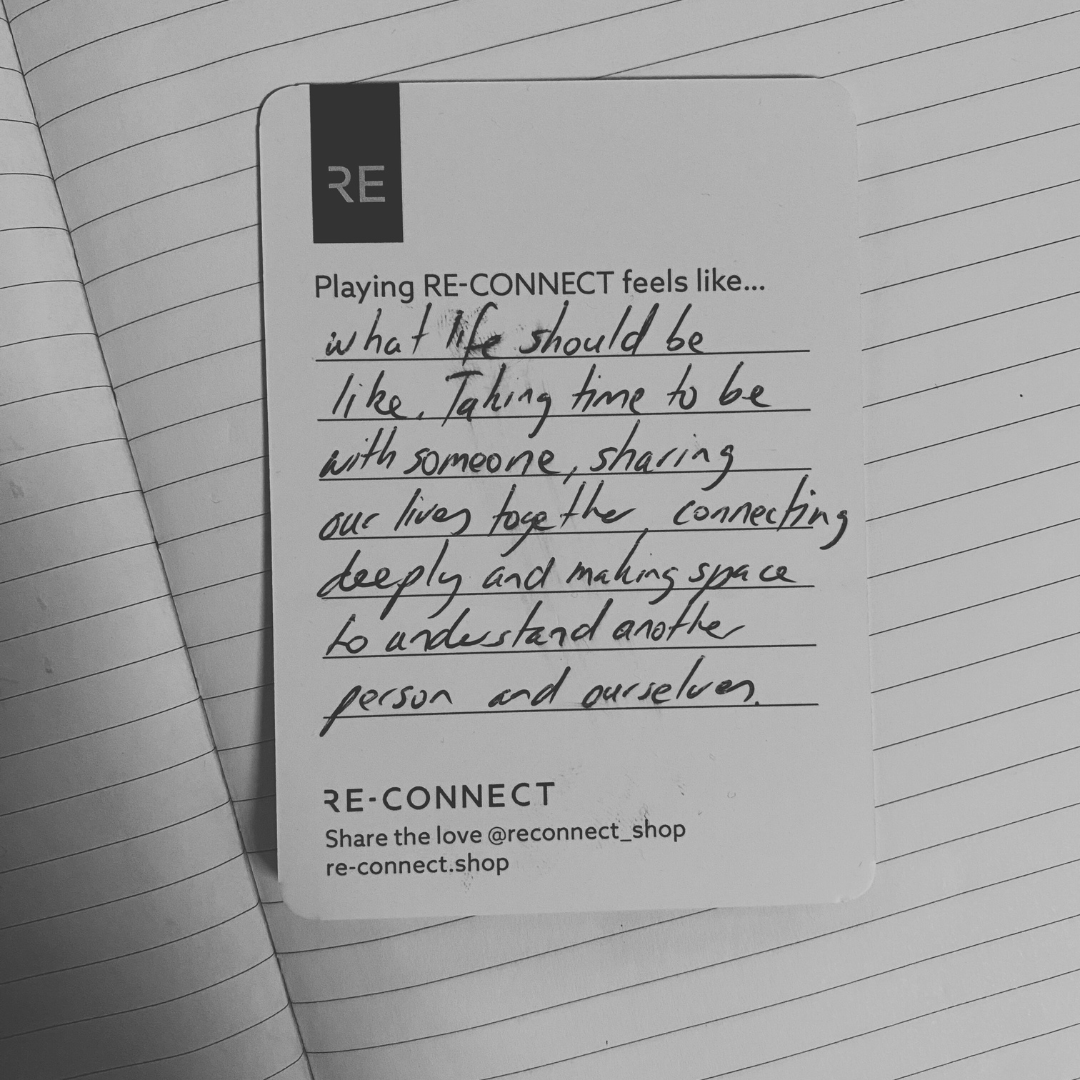 RE
Playing RE-CONNECT feels like...
what life should be
like. Taking time to be
with someone, sharing
our lives together, connecting
deeply and making space
to understand another
person and ourselves.
RE-CONNECT
Share the love @reconnect_shop
re-connect.shop